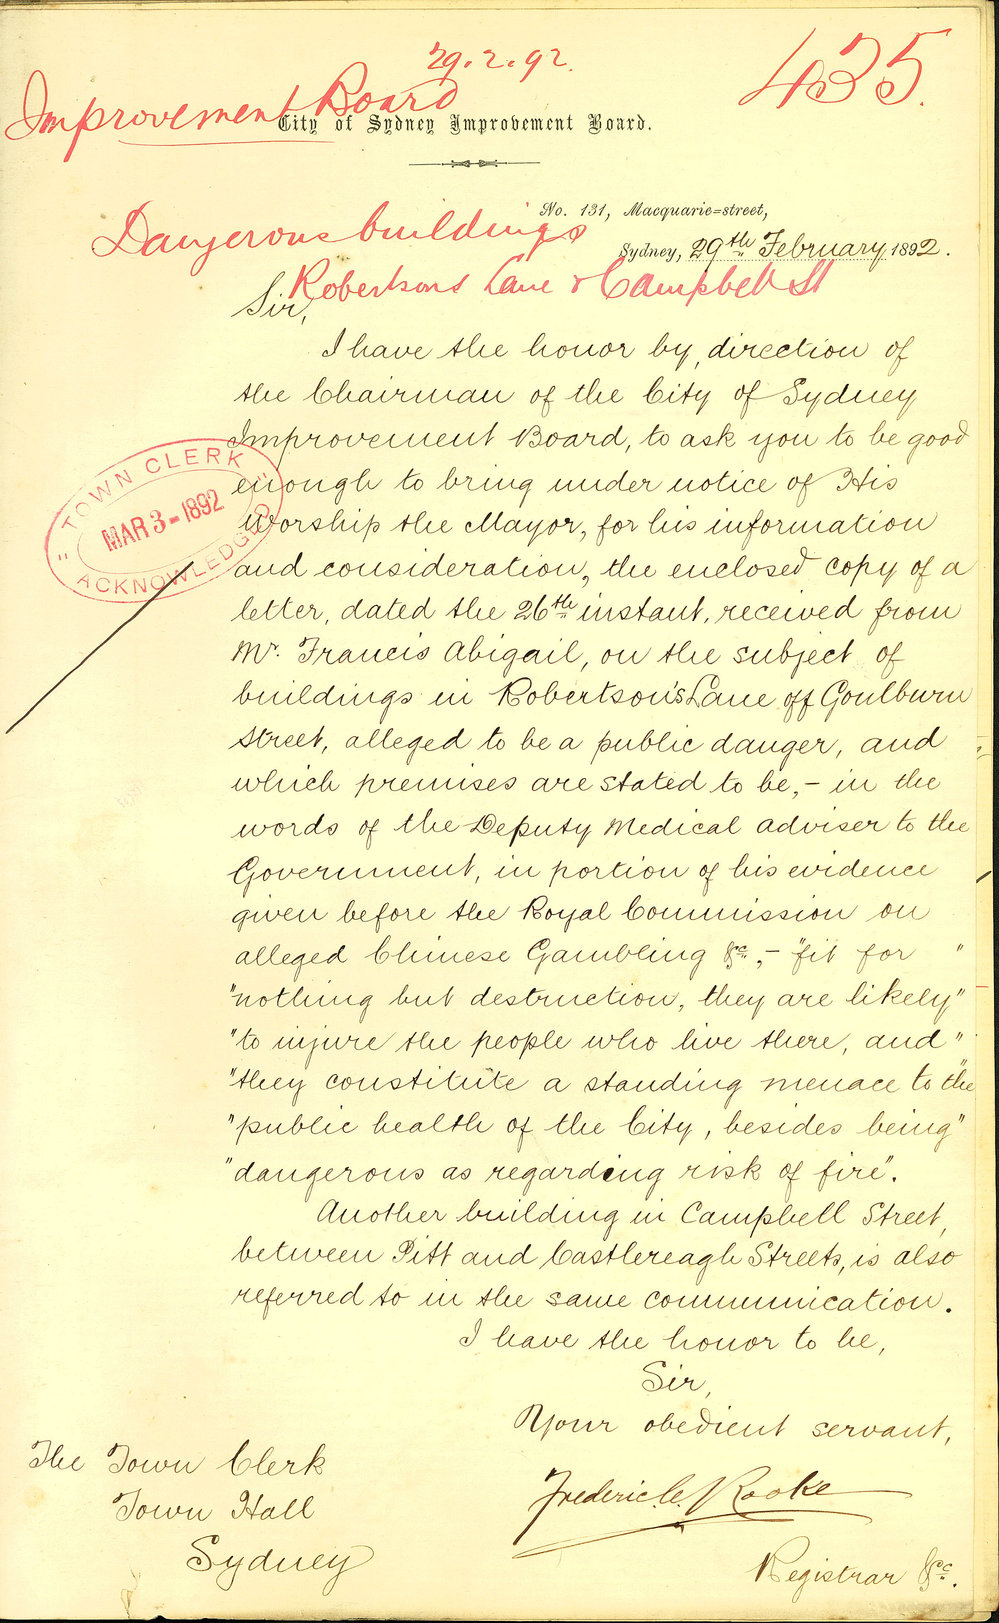 29.2.92.
435.
Improvement Board
City of Sydney Improvement Board.
No. 131, Macquarie=street,
Dangerous buildings
Sydney, 29th February 1892.
Robertsons Lane & Campbell St
Sir,
I have the honor by, direction of
the Chairman of the City of Sydney
Improvement Board, to ask you to be good
enough to bring under notice of His
Worship the Mayor, for his information
and consideration, the enclosed copy of a
letter, dated the 26th instant, received from
Mr. Francis Abigail, on the subject of
buildings in Robertson's Lane off Goulburn
Street, alleged to be a public danger, and
which premises are stated to be, – in the
words of the Deputy Medical adviser to the
Government, in portion of his evidence
given before the Royal Commission on
alleged Chinese Gambling &c, – "fit for "
"nothing but destruction, they are likely"
"to injure the people who live there, and "
"they constitute a standing menace to the"
"public health of the City, besides being"
"dangerous as regarding risk of fire".
Another building in Campbell Street,
between Pitt and Castlereagh Streets, is also
referred to in the same communication.
I have the honor to be,
Sir,
Your obedient servant,
Frederic C. Rooke
Registrar &c.
The Town Clerk
Town Hall
Sydney
TOWN CLERK
MAR 3-1892
ACKNOWLEDGED